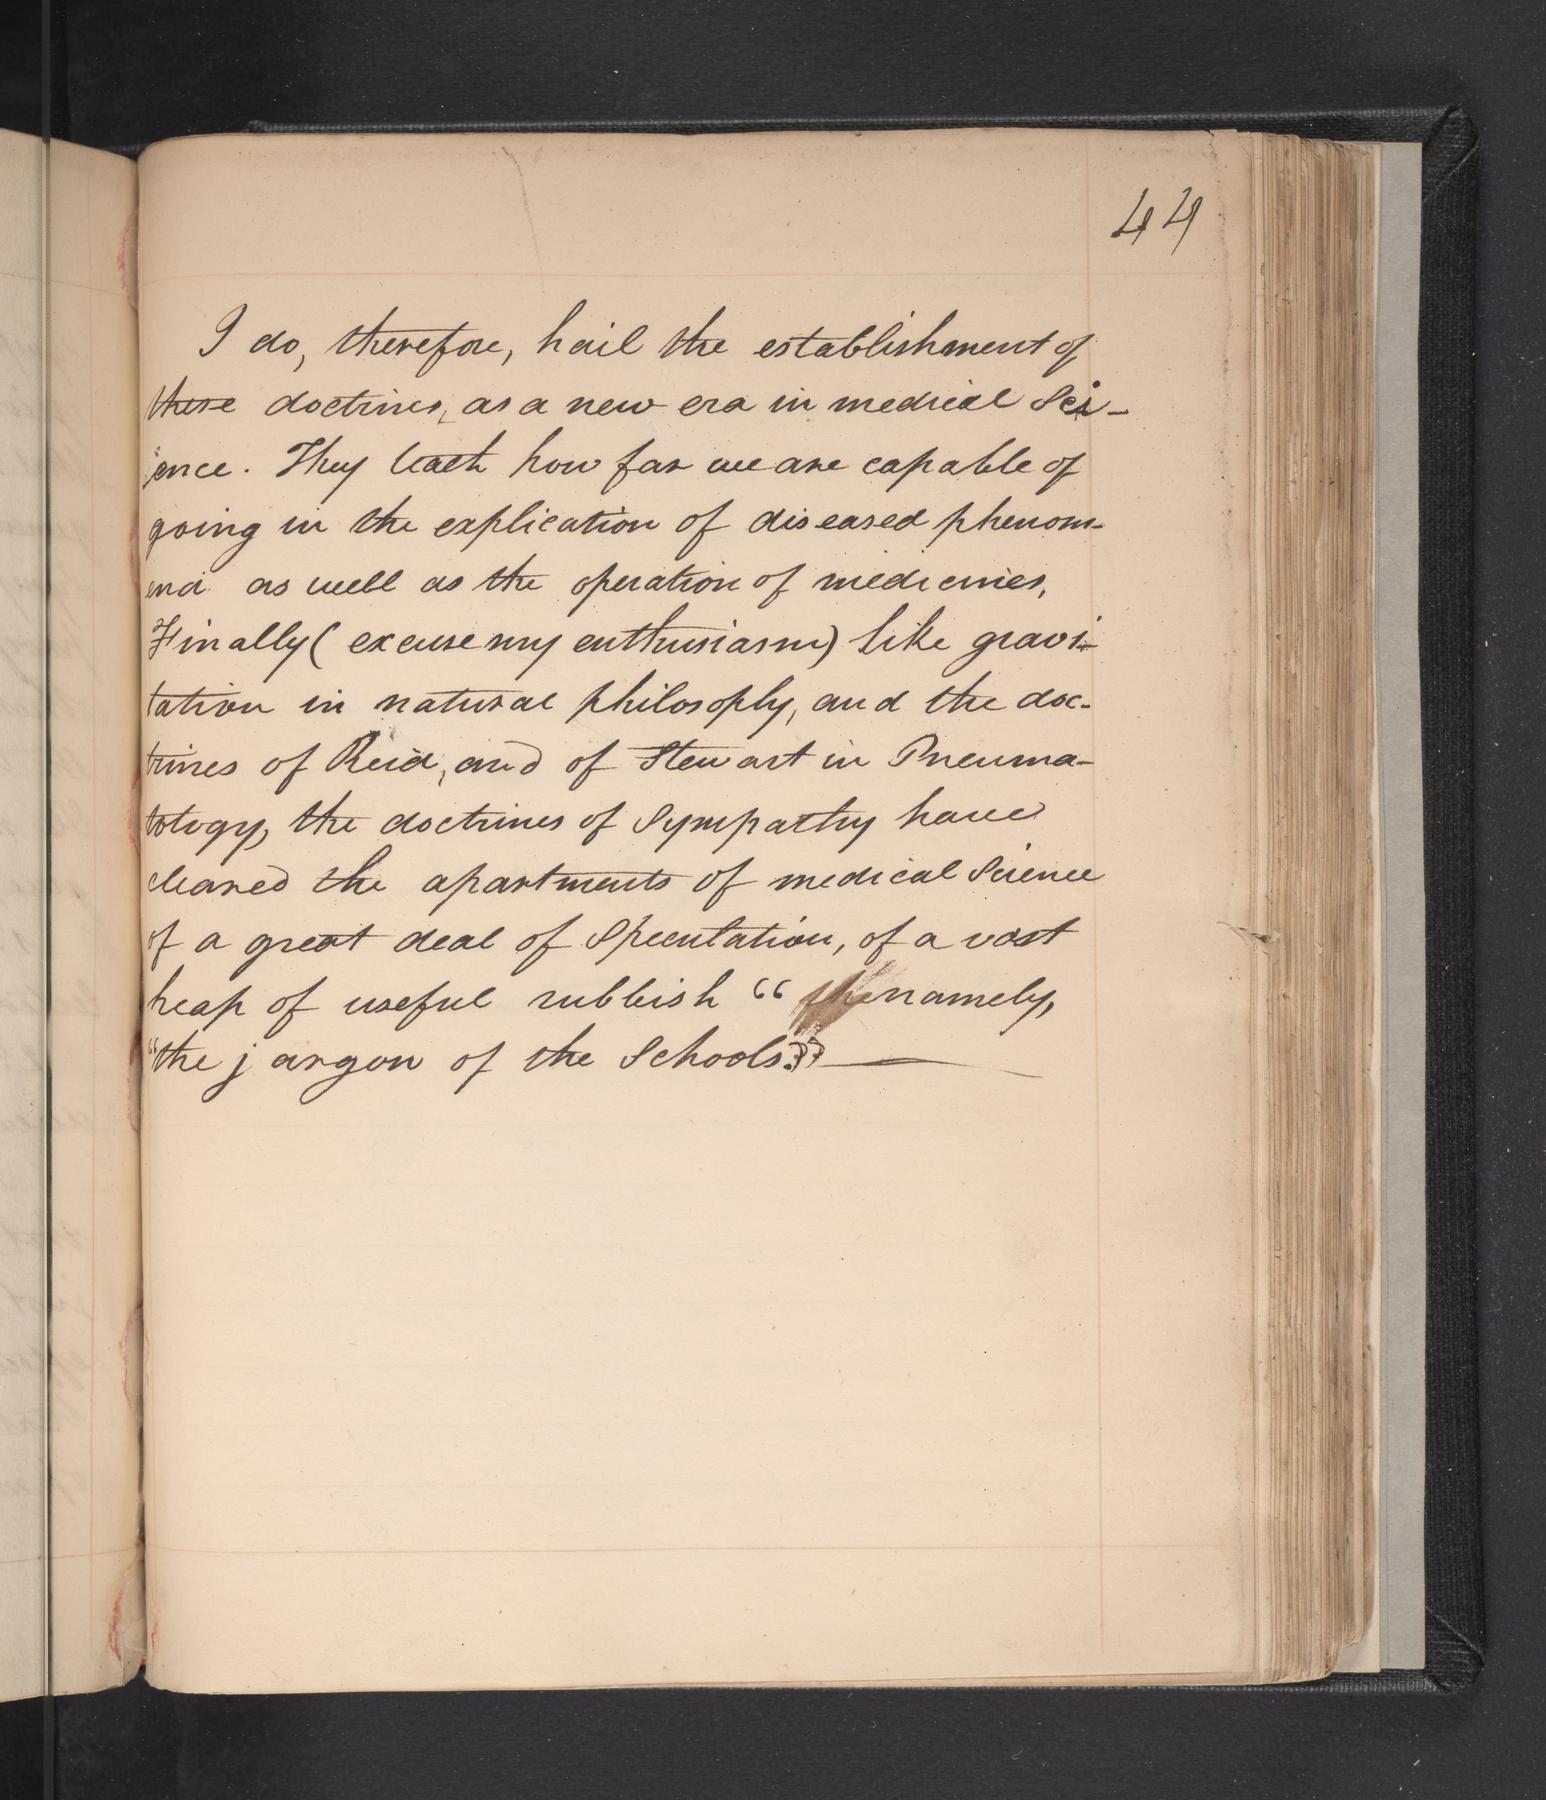 44
I do, therefore, hail the establishment of
these doctrines, as a new era in medical Sci-
ence. They teach how far we are capable of
going in the explication of diseased phenom-
ena as well as the operation of medicines,
Finally ( excuse my enthusiasm) like gravi-
tation in natural philosophy, and the doc-
trines of Reid, and of Stewart in Pneuma-
tology, the doctrines of Sympathy have
cleared the apartments of medical Science
of a great deal of Speculation, of a vast
heap of useful rubbish “ namely,
“the jargon of the Schools.”